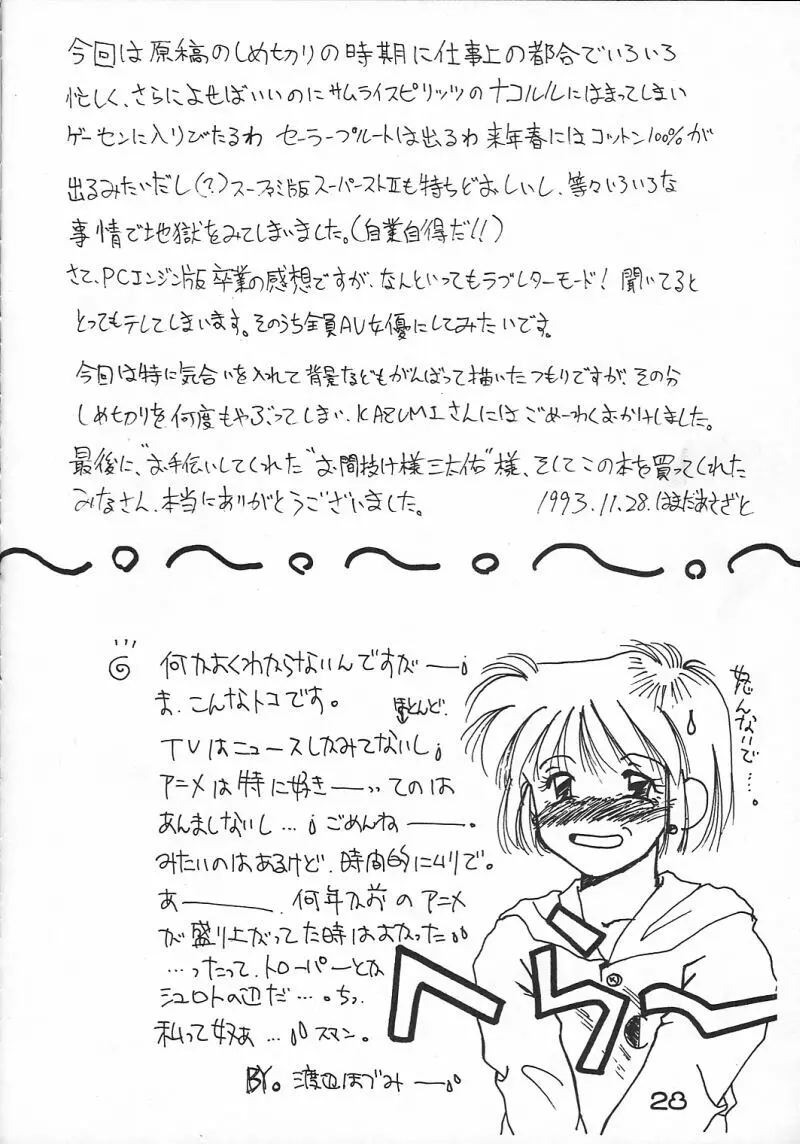 今回は原稿のしめ切りの時期に仕事上の都合でいろいろ
忙しく、さらによせばいいのにサムライスピリッツのナコルルにはまってしまい
ゲーセンに入りびたるわ セーラープルートは出るわ 来年春にはコットン100%が
出るみたいだし(?)スーファミ版スーパーストIIも待ちどおしいし、等々いろいろな
事情で地獄をみてしまいました。(自業自得だ!!)
さて、PCエンジン版卒業の感想ですが、なんといってもラブレターモード! 聞いてると
とってもテレてしまいます。そのうち全員AV女優にしてみたいです。
今回は特に気合いを入れて背景などもがんばって描いたつもりですが、その分
しめ切りを何度もやぶってしまい、KAZUMIさんにはごめーわくおかけしました。
最後に、"お手伝いしてくれた"お間抜け様三太佑"様、そしてこの本を買ってくれた
みなさん、本当にありがとうございました。 1993.11.28.はまだあさざと
何かよくわからないんですがー
ま、こんなトコです。
ほとんど
TVはニュースしかみてないし
アニメは特に好きー…ってのは
あんましないし…ごめんねー。
みたいのはあるけど、時間的にムリで。
あー、何年か前のアニメ
が盛り上がってた時はよかった
…ったって、トルーパーとか
シュラトの辺だ…。ちっ
私って奴ぁ…スマン。
BY。渡辺ほづみー
なんないで…。
へへっ
28